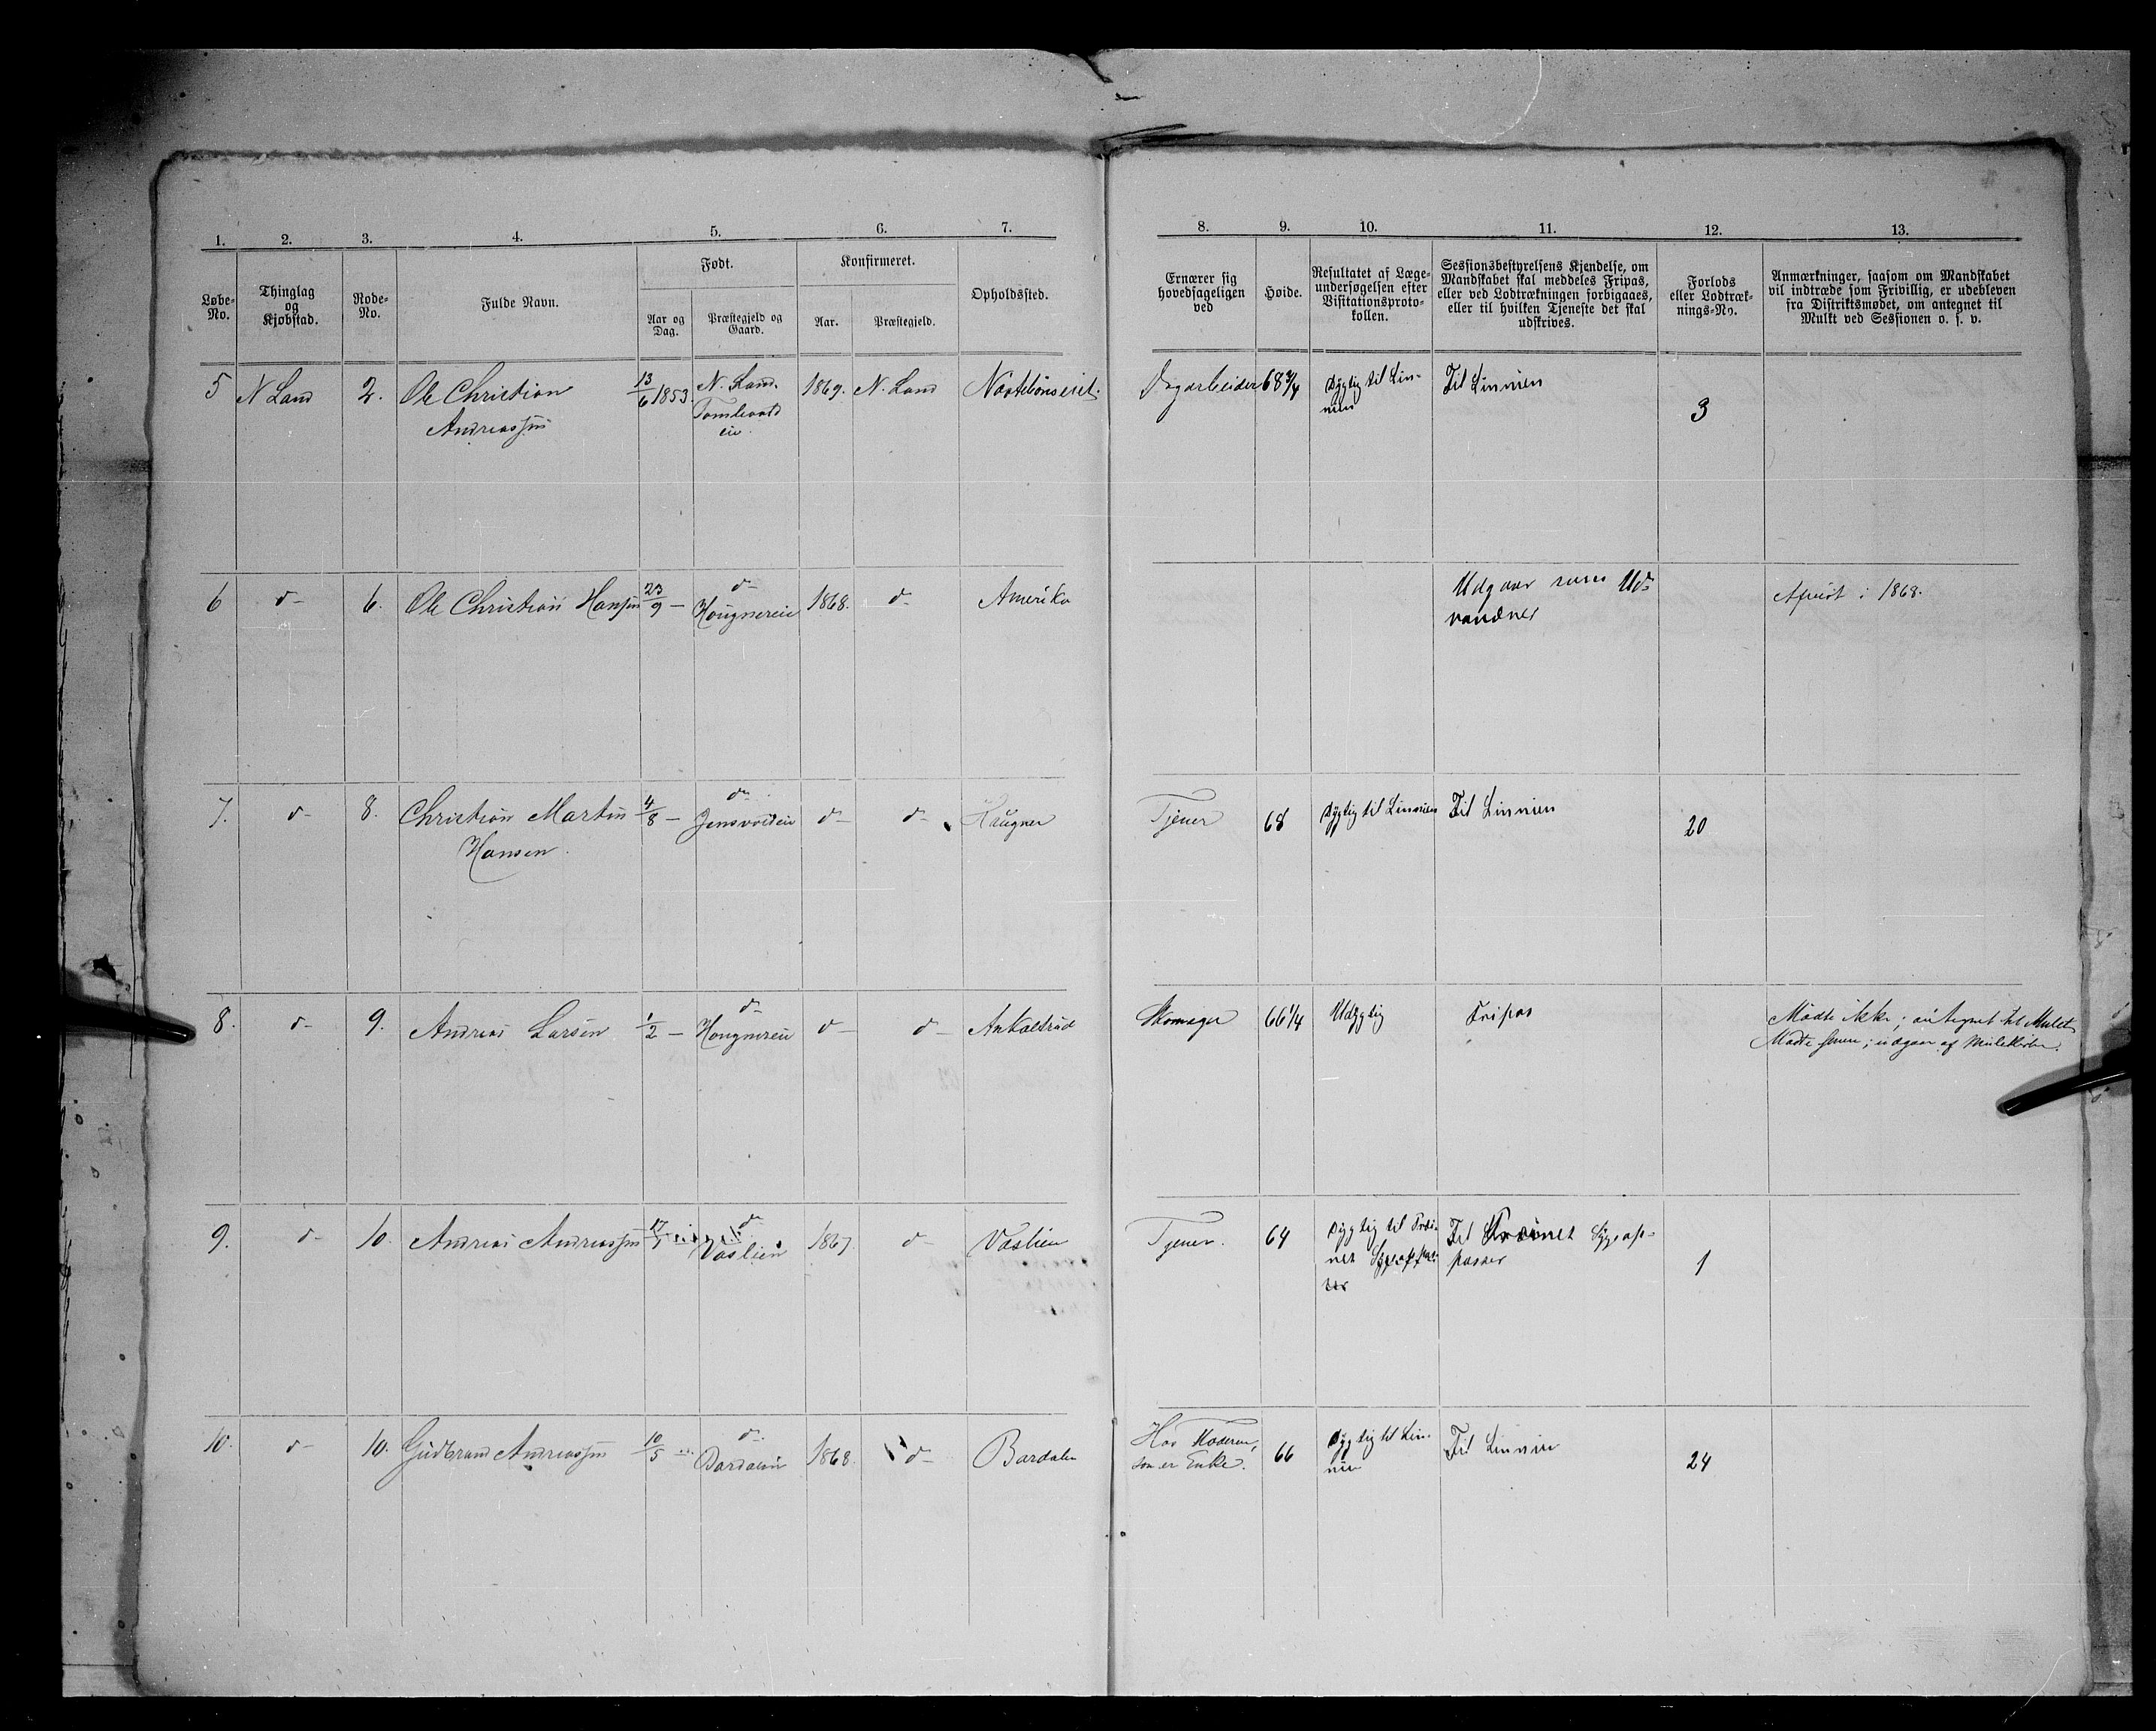 1. 2. 3. 4. 5. 6. 7. 8. 9. 10. 11. 12. 13.
Løbe-
No.
Thinglag
og
Kjøbstad.
Rode-
No.
Fulde Navn.
Født.
Aar og
Dag.
Præstegjeld og
Gaard.
Konfirmeret.
Aar.
Præstegjeld.
Opholdssted.
Ernærer sig
hovedsageligen
ved
Høide.
Resultatet af Læge-
undersøgelsen efter
Visitationsproto-
kollen.
Sessionsbestyrelsens Kjendelse, om
Mandskabet skal meddeles Fripas,
eller ved Lodtrækningen forbigaaes,
eller til hvilken Tjeneste det skal
udskrives.
Forlods
eller Lodtræk-
nings-No.
Anmærkninger, saasom om Mandskabet
vil indtræde som Frivillig, er udebleven
fra Distriktsmødet, om antegnet til
Mulkt ved Sessionen o. s. v.
5 N Land 2. Ole Christian 13/6 1853. N. Land. 1869. N. Land Dagarbeider 68 3/4 Dygtig til Lin- Til Linnien
Andreassen eie. nien 3
6 d- 6. Ole Christian Hansen 23/9 - d- 1868. d- Amerika Udgaar som Ud- Afreist i 1868.
Hougnereie vandret
7. d- 8. Christian Martin 4/8 - d- d- d- Haugner Tjener 68 Dygtig til Linnien Til Linnien 20
Hansen. Jensvoldeie
8. d- 9. Andreas Larsen 1/2 - d- d- d- Skomager 66 1/4 Udygtig Fripas Mødte ikke; antegnet til Mulct
Hougnereie Mødte senere; udgaar af Mulctlisten.
9. d- 10. Andreas Andreassen d- 1867. d- Vaslien Tjener. 64 Dygtig til Træ- Til Trainet Sygeap-
Vaslien net passer 1
10. d- 10. Gudbrand Andreassen 10/5 - d- 1868. d- Bardalen Hos Moderen, 66 Dygtig til Lin- Til Linnien
som er Enke. nien 24